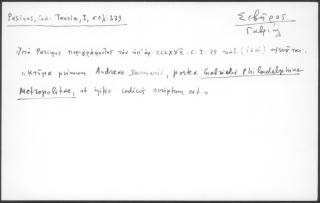 Pasinus, Codd. Taurin., I, σελ. 383
Σεβῆρος
Γαβριήλ
Ὑπὸ Pasinus περιγράφεται τὸν ὑπ' ἀρ. CCLXXX. C. I. 23
«Κτῆμα primum Andreae Darmarii, postea Gabrielis Philadelphiae
Metropolitae, ut initio codicis scriptum est.»